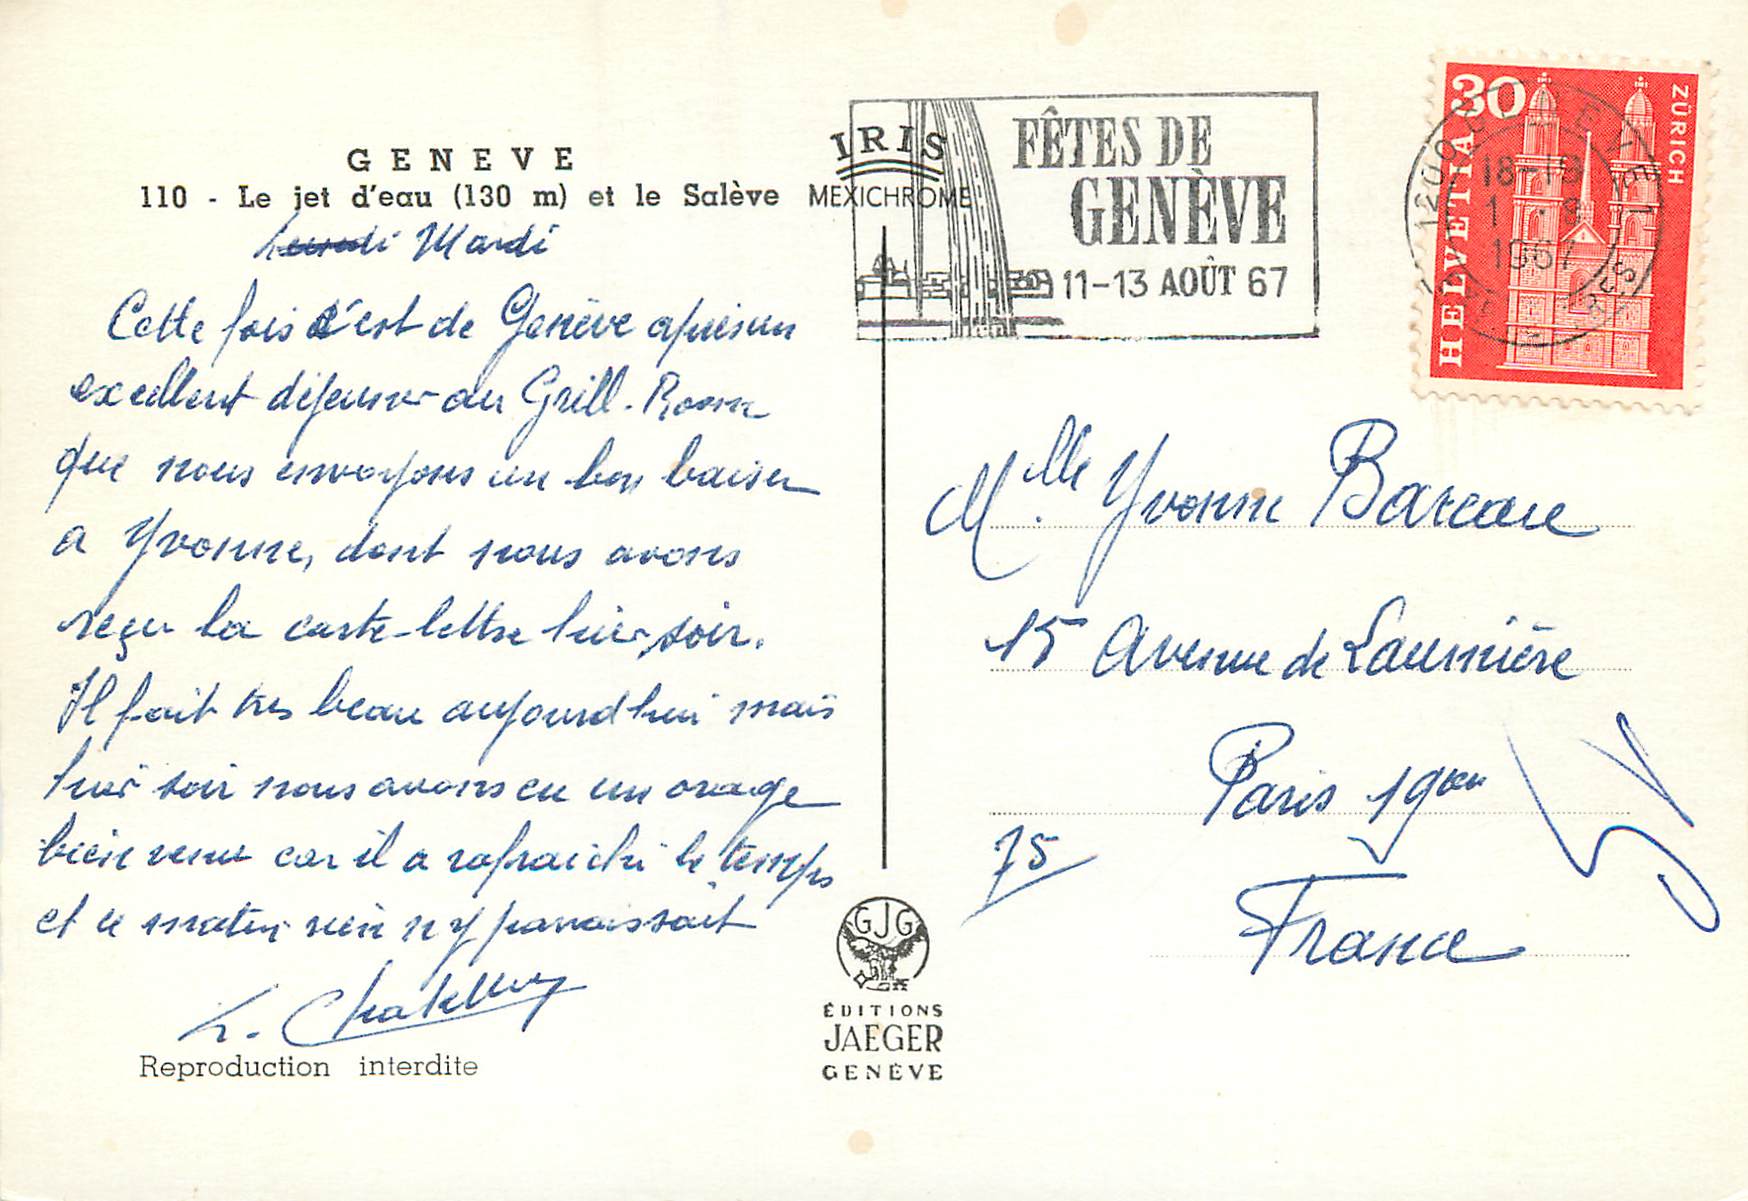 GENEVE
110 - Le jet d'eau (130 m) et le Salève
IRIS
MEXICHROME
Lundi Mardi
Cette fois c'est de Genève après un
excellent déjeuner au Grill-Room
que nous envoyons un bon baiser
a Yvonne, dont nous avons
reçu la carte-lettre hier soir.
Il fait très beau aujourd'hui mais
hier soir nous avons eu un orage
bien venu car il a rafraichi le temps
et ce matin rien n'y paraissait
Reproduction interdite
GJG
ÉDITIONS
JAEGER
GENÈVE
FÊTES DE
GENÈVE
11-13 AOÛT 67
30
HELVETIA
ZÜRICH
18-19
1.8
1967
Mlle Yvonne Bareau
15 Avenue de Laumière
Paris 19em
75
France